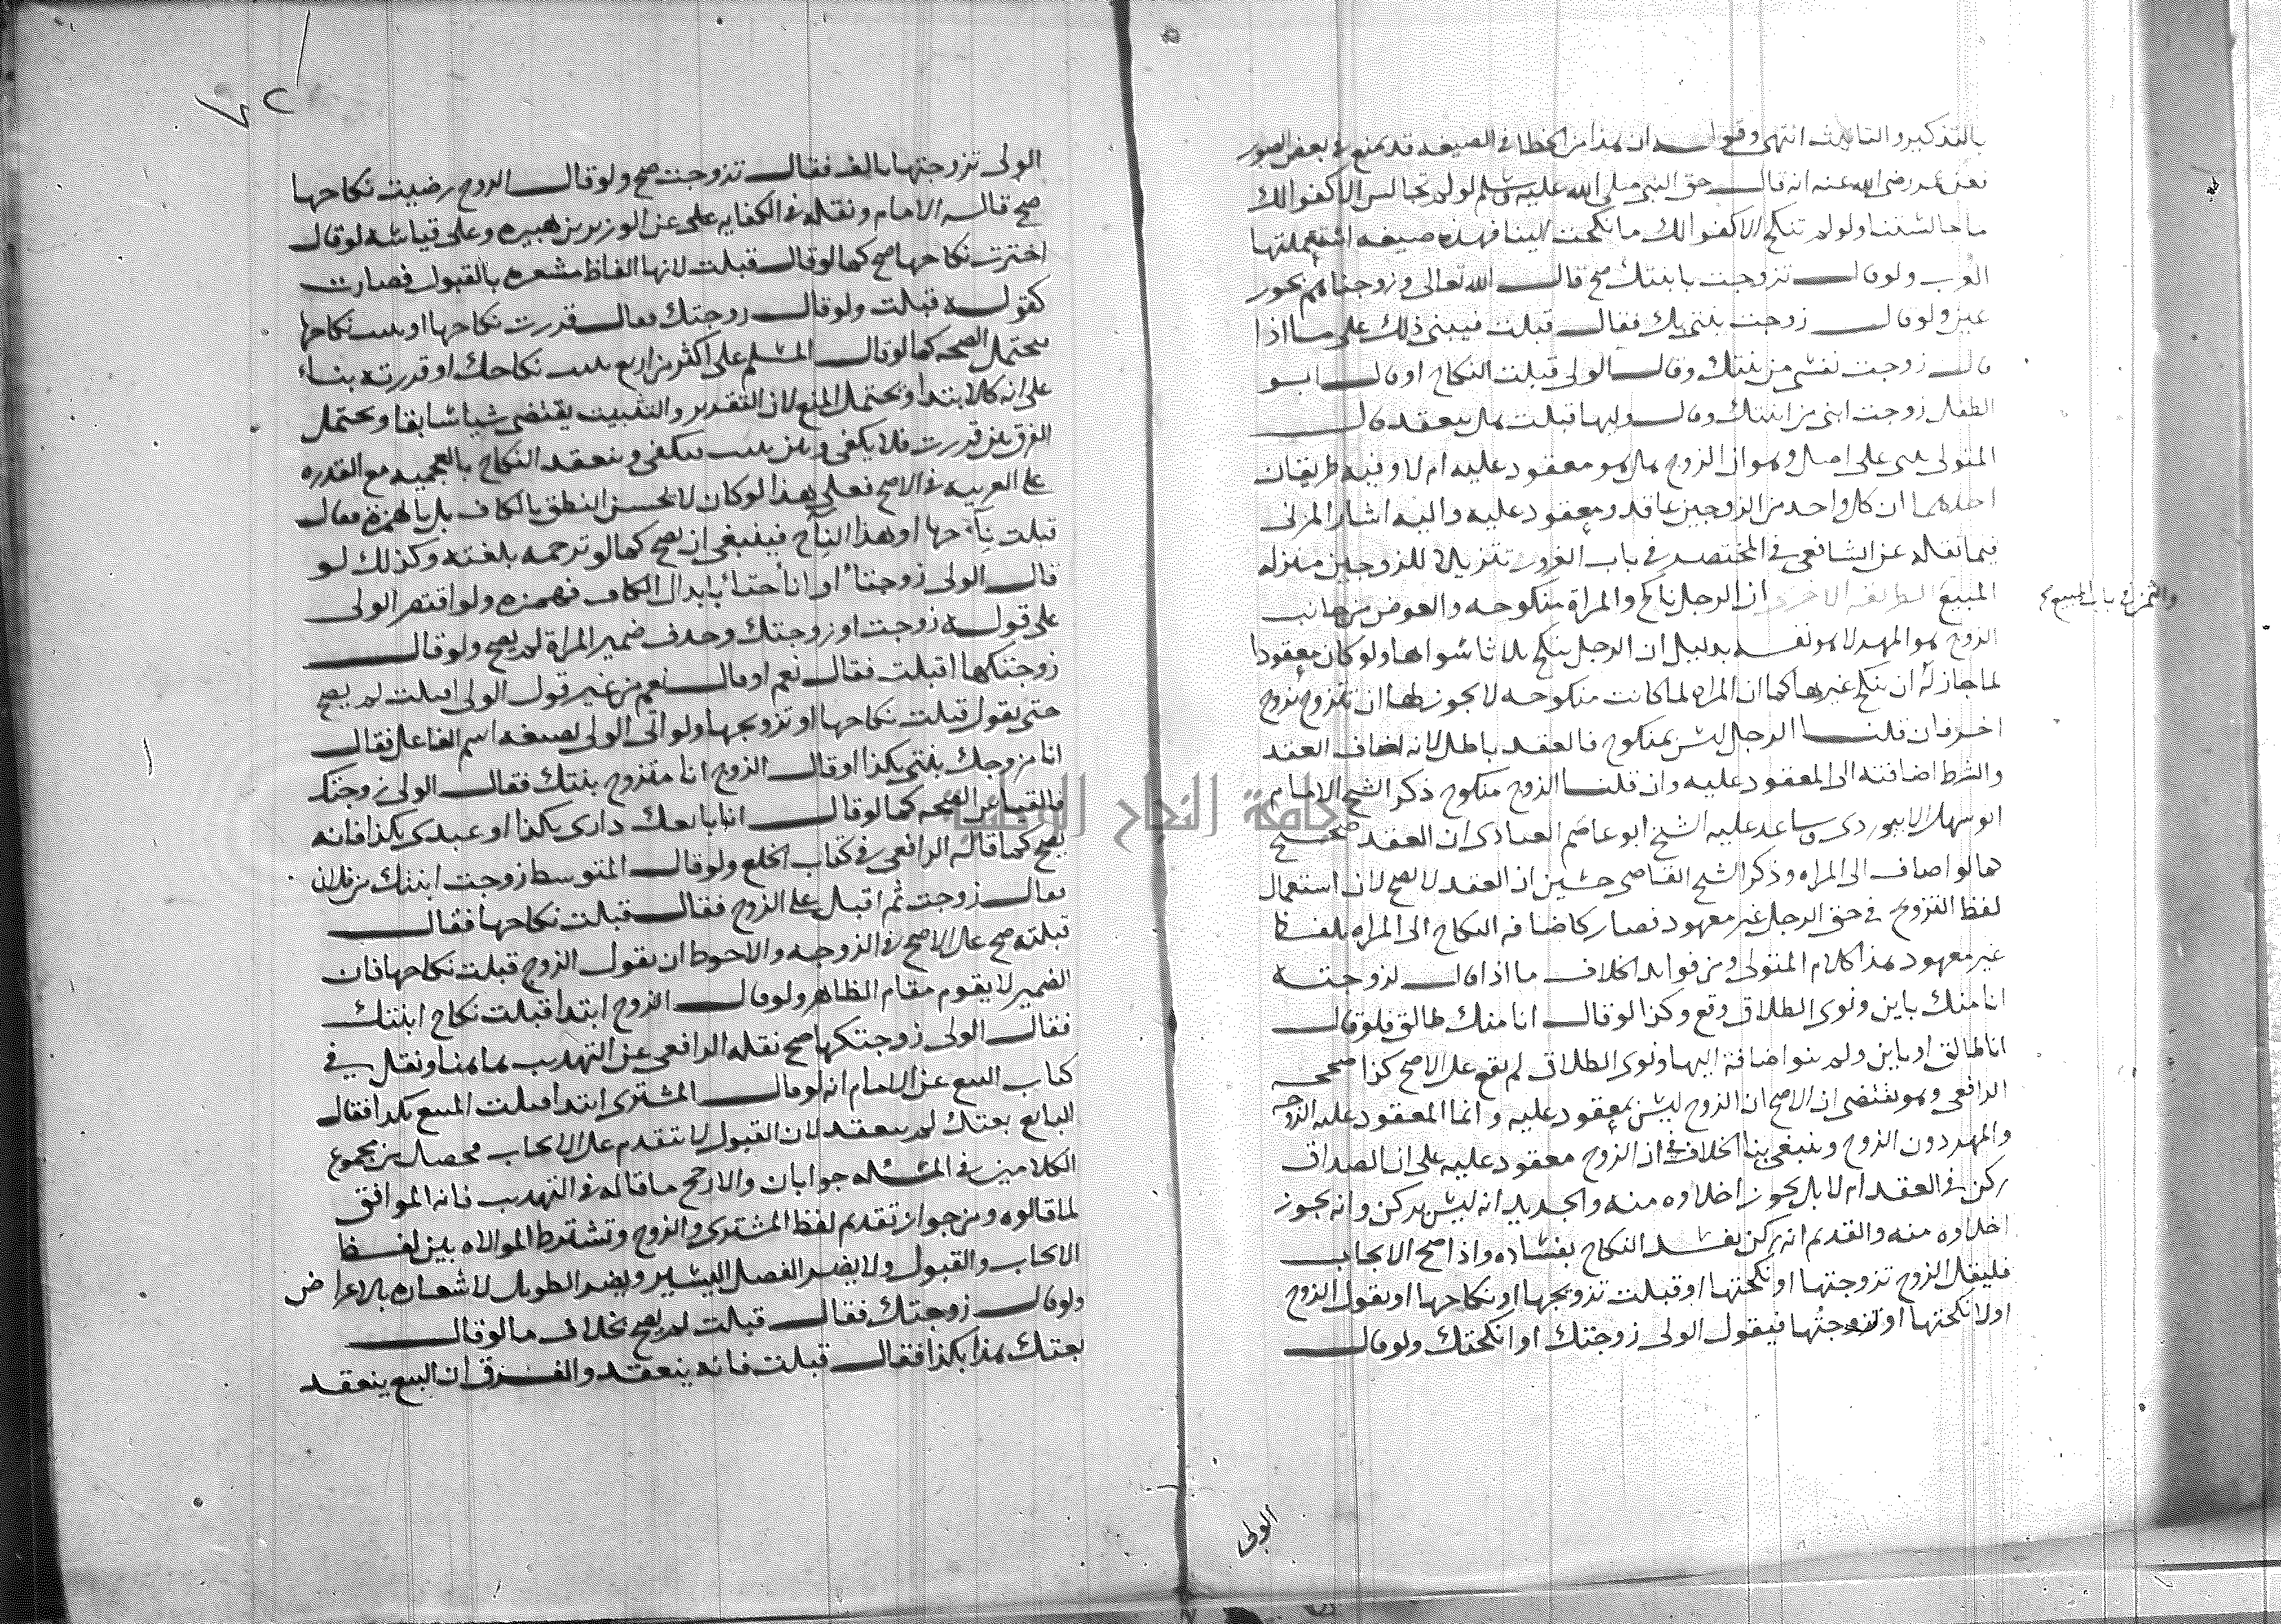 بالتذكير والتانيث انتهى وقوله ان هذا من الخطا في الصيغه قد يمنع في بعض الصور
فعن عمر رضي الله عنه انه قال حق النبي صلى الله عليه وسلم لو لم تجالس الا كفوا لك
ما جالستنا ولو لم تنكح الا كفوا لك ما نكحت الينا فهذه صيغه استعملتها
العرب ولو قال تزوجت بابنتك صح قال الله تعالى وزوجناهم بحور
عين ولو قال زوجت بنتي بك فقال قبلت فيبنى ذلك على ما اذا
قال زوجت نفسي من بنتك وقال الولي قبلت النكاح او قال ابو
الطفل زوجت ابني من ابنتك وقال وليها قبلت هل ينعقد قال
المتولي يبنى على اصل وهو ان الزوج هل هو معقود عليه ام لا وفيه طريقان
احدهما ان كل واحد من الزوجين عاقد ومعقود عليه واليه اشار المزني
فيما نقله عن الشافعي في المختصر في باب الغرور تنزيلا للزوجين منزله
والثمن في باب البيع
المبيع الطريقه الاخرى ان الرجل ناكح والمراة منكوحه والعوض من جانب
الزوج هو المهر لا هو نفسه بدليل ان الرجل ينكح ثلاثا سواها ولو كان معقودا
لما جاز له ان ينكح غيرها كما ان المراه لما كانت منكوحه لا يجوز لها ان تتزوج بزوج
اخر فان قلنا الرجل ليس بمنكوح فالعقد باطل لانه اضاف العقد
والشرط اضافته الى المعقود عليه وان قلنا الزوج منكوح ذكر الشيخ الامام
ابو سهل الابيوردي وساعد عليه الشيخ ابو عاصم العبادي ان العقد صحيح
كما لو اضاف الى المراه وذكر الشيخ القاضي حسين ان العقد لا يصح لان استعمال
لفظ التزويج في حق الرجل غير معهود فصار كاضافه النكاح الى المراه بلفظ
غير معهود هذا كلام المتولي ومن فوايد الخلاف ما اذا قال لزوجته
انا منك باين ونوى الطلاق وقع وكذا لو قال انا منك طالق فلو قال
انا طالق او باين ولم ينو اضافة اليها ونوى الطلاق لم يقع على الاصح كذا صححه
الرافعي وهو يقتضي ان الاصح ان الزوج ليس بمعقود عليه وانما المعقود عليه الزوجه
والمهر دون الزوج وينبغي بنا الخلاف في ان الزوج معقود عليه على ان الصداق
ركن في العقد ام لا بل يجوز اخلاوه منه والجديد انه ليس بركن وانه يجوز
اخلاوه منه والقديم انه ركن يفسد النكاح بفساده واذا صح الايجاب
فليقل الزوج تزوجتها او نكحتها او قبلت تزويجها او نكاحها او يقول الزوج
اولا نكحتها او تزوجتها فيقول الولي زوجتك او انكحتك ولو قال
الولي
الولي تزوجتها بالف فقال تزوجت صح ولو قال الزوج رضيت نكاحها
صح قاله الامام ونقله في الكفايه على عن الوزير بن هبيره وعلى قياسه لو قال
اخترت نكاحها صح كما لو قال قبلت لانها الفاظ مشعره بالقبول فصارت
كقوله قبلت ولو قال زوجتك فقال قررت نكاحها او ثبت نكاحها
يحتمل الصحه كما لو قال المسلم على اكثر من اربع ثبت نكاحك او قررته بناء
على انه كالابتداء ويحتمل المنع لان التقدير والتثبيت يقتضي شيا سابقا ويحتمل
الفرق بين قررت فلا يكفي وبين ثبت فيكفي وينعقد النكاح بالعجميه مع القدره
على العربيه في الاصح فعلى هذا لو كان لا يحسن النطق بالكاف بل بالهمزة فقال
قبلت نئاحها او هذا النئاح فينبغي ان يصح كما لو ترجمه بلغته وكذلك لو
قال الولي زوجتئ او انأحتئ بابدال الكاف فهمزه ولو اقتصر الولي
على قوله زوجت او زوجتك وحذف ضمير المراة لم يصح ولو قال
زوجتكها اقبلت فقال نعم او قال نعم من غير قول الولي اقبلت لم يصح
حتى يقول قبلت نكاحها او تزويجها ولو اتى الولي بصيغه اسم الفاعل فقال
انا مزوجك بنتي بكذا او قال الزوج انا متزوج بنتك فقال الولي زوجتك
فالقياس الصحه كما لو قال انا بايعك داري بكذا او عبدي بكذا فانه
يصح كما قاله الرافعي في كتاب الخلع ولو قال المتوسط زوجت ابنتك من فلان
فقال زوجت ثم اقبل على الزوج فقال قبلت نكاحها فقال
قبلته صح على الاصح في الزوجه والاحوط ان يقول الزوج قبلت نكاحها فان
الضمير لا يقوم مقام الظاهر ولو قال الزوج ابتدا قبلت نكاح ابنتك
فقال الولي زوجتكها صح نقله الرافعي عن التهذيب هاهنا ونقل في
كتاب البيع عن الامام انه لو قال المشتري ابتدا قبلت المبيع بكذا فقال
البايع بعتك لم ينعقد لان القبول لا يتقدم على الايجاب فحصل من مجموع
الكلامين في المسئله جوابان والارجح ما قاله في التهذيب فانه الموافق
لما قالوه ومن جواز تقديم لفظ المشتري والزوج وتشترط الموالاه بين لفظ
الايجاب والقبول ولا يضر الفصل اليسير ويضر الطويل لاشعاره بالاعراض
ولو قال زوجتك فقال قبلت لم يصح بخلاف ما لو قال
بعتك هذا بكذا فقال قبلت فانه ينعقد والفرق ان البيع ينعقد